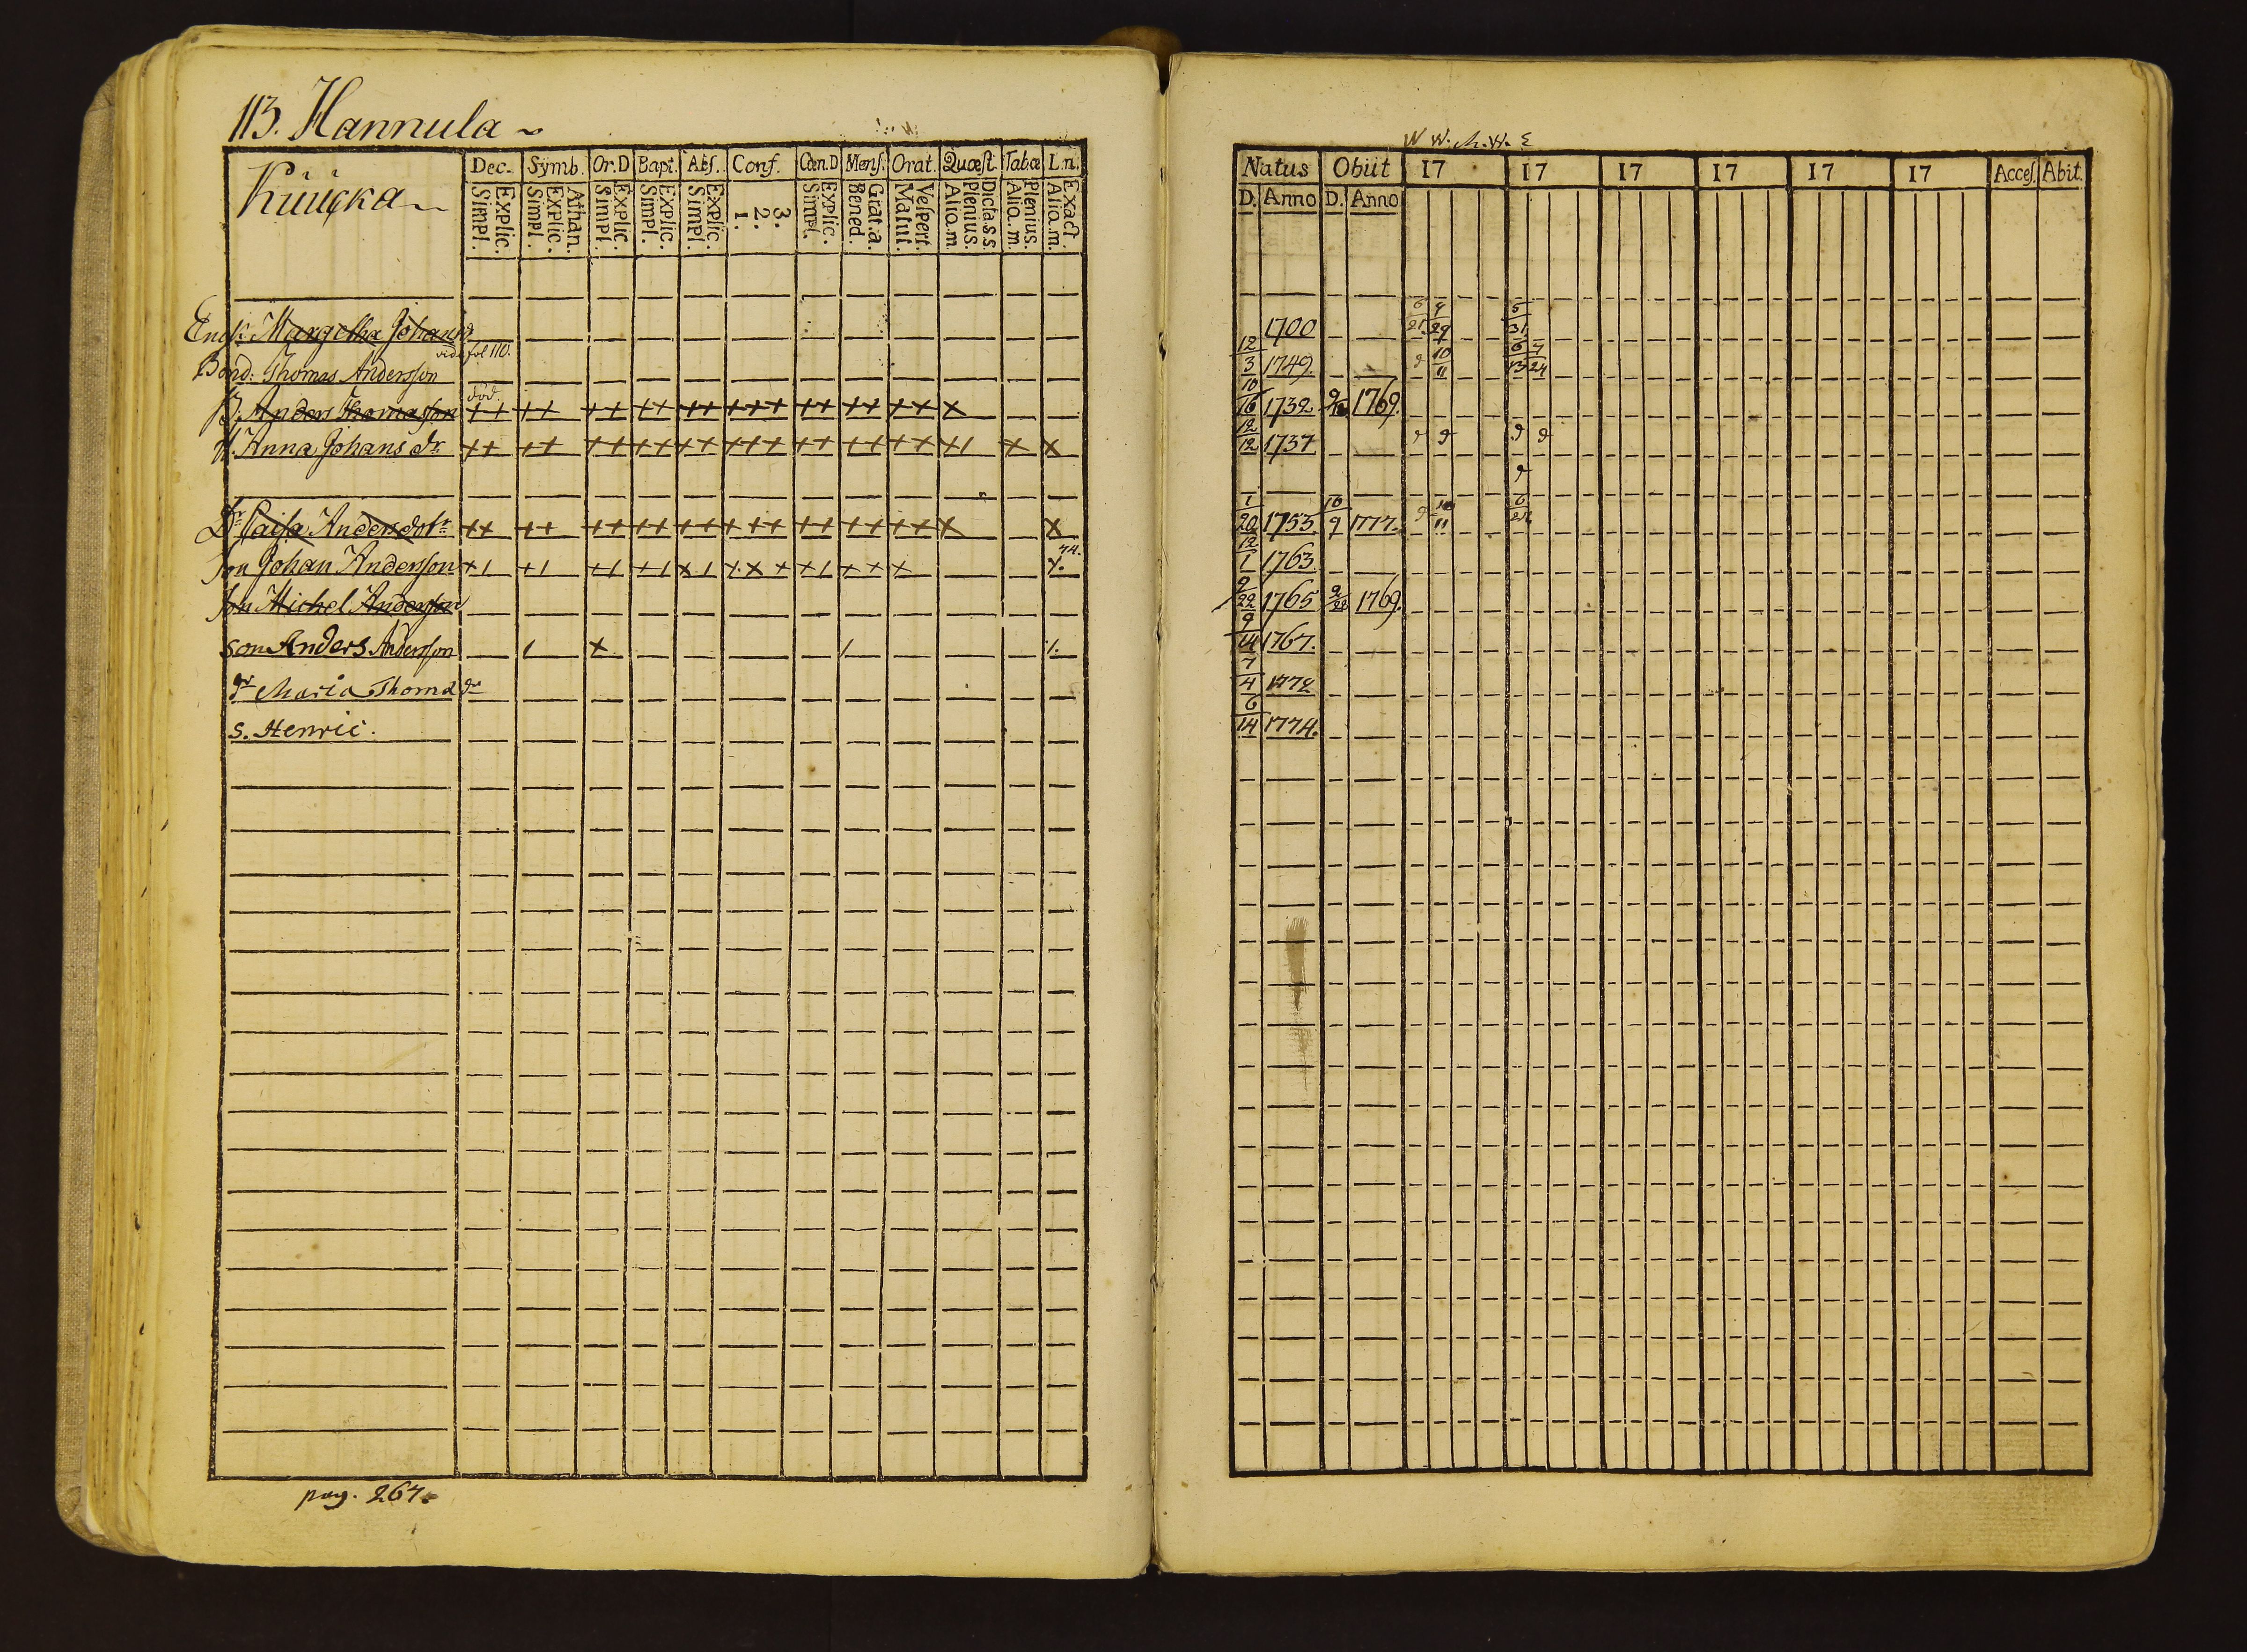 113. Hannula
Dec. Symb. Or.D Bapt. Abs. Conf. Cœn.D Mens. Orat. Quæst. Tabæ L.n.
Simpl. Explic. Simpl. Explic. Athan. Simpl. Explic. Simpl. Explic. Simpl. Explic. 1. 2. 3. Simpl. Explic. Bened. Grat.a. Matut. Vespert. Alio.m. Plenius. Dicta.s.s. Alio.m. Plenius. Alio.m. Exact.
Enck. Margetha Johansd
vide fol 110.
Bond: Thomas Andersson
död
B. Anders Thomasson ++ ++ ++ ++ ++ +++ ++ ++ ++ x
H. Anna Johans dr ++ ++ ++ ++ ++ +++ ++ ++ ++ +1 x x
Dr Caisa Andersdotr ++ ++ ++ ++ ++ +++ ++ ++ ++ x x
74.
son Johan Andersson +1 +1 +1 +1 x1 x x + x1 ++ x
Son Michel Andersson
son Anders Andersson / x / /.
dr Maria Thomædr
s. Henric.
pag. 267.
Natus Obiit 17 17 17 17 17 17 Acces. Abit.
D. Anno D. Anno
1700 6/21 9/29 5/31
12/3 1749. 10/11 6/13 7/24
10/16 1732 1769.
12/12 1737
1/20 1755 10/9 1777. 10/11
12/1 1763
9/22 1765 9/22 1769.
9/14 1767.
7/4 1772
6/14 1774.